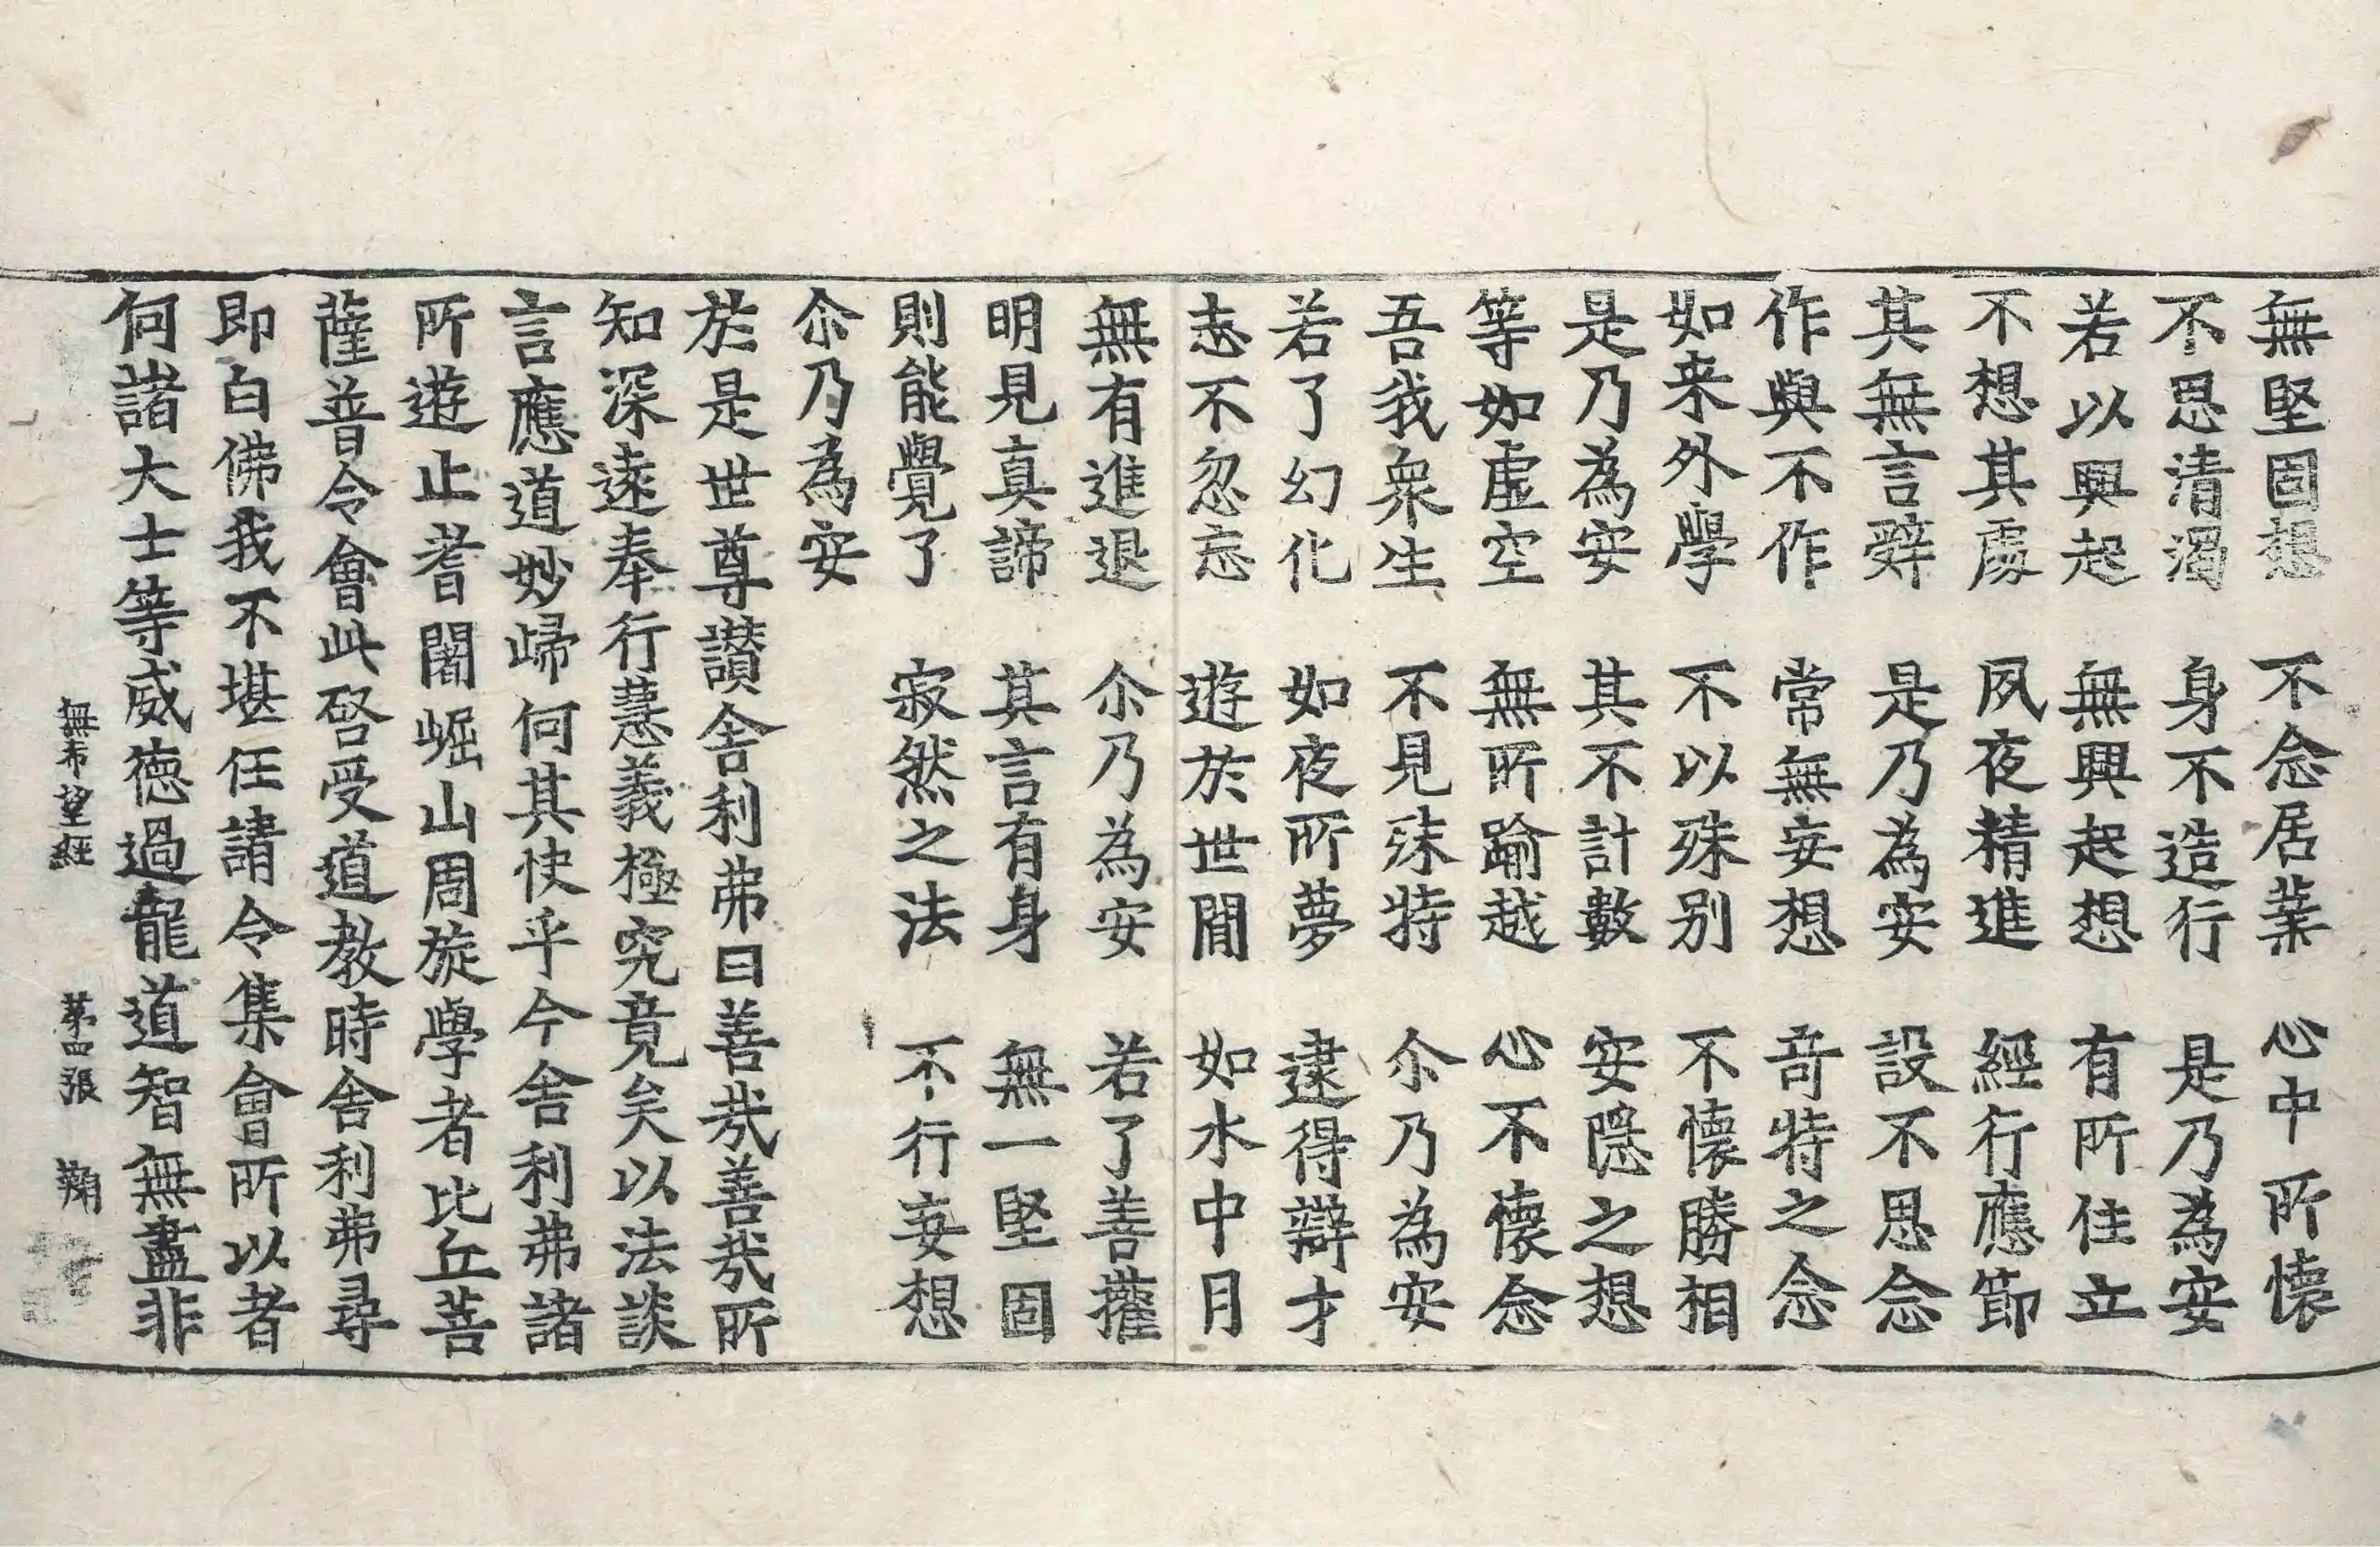 無堅固想 不念居業 心中所懷
不思清濁 身不造行 是乃為安
若以興起 無興起想 有所住立
不想其處 夙夜精進 經行應節
其無言辭 是乃為安 設不思念
作與不作 常無妄想 奇特之念
如来外學 不以殊别 不懷勝相
是乃為安 其不計數 安隱之想
等如虛空 無所踰越 心不懷念
吾我衆生 不見殊特 尒乃為安
若了幻化 如夜所夢 逮得辯才
志不忽忘 遊於世間 如水中月
無有進退 尒乃為安 若了善權
明見真諦 其言有身 無一堅固
則能覺了 寂然之法 不行妄想
尒乃為安
於是世尊讃舎利弗曰善㢤善㢤所
知深遠奉行慧義極究竟矣以法談
言應道妙歸何其快乎今舎利弗諸
所遊止耆闍崛山周旋學者比丘菩
薩普令會此啓受道教時舎利弗尋
即白佛我不堪任請令集會所以者
何諸大士等威德過龍道智無盡非
無希望經 第四張 鞠